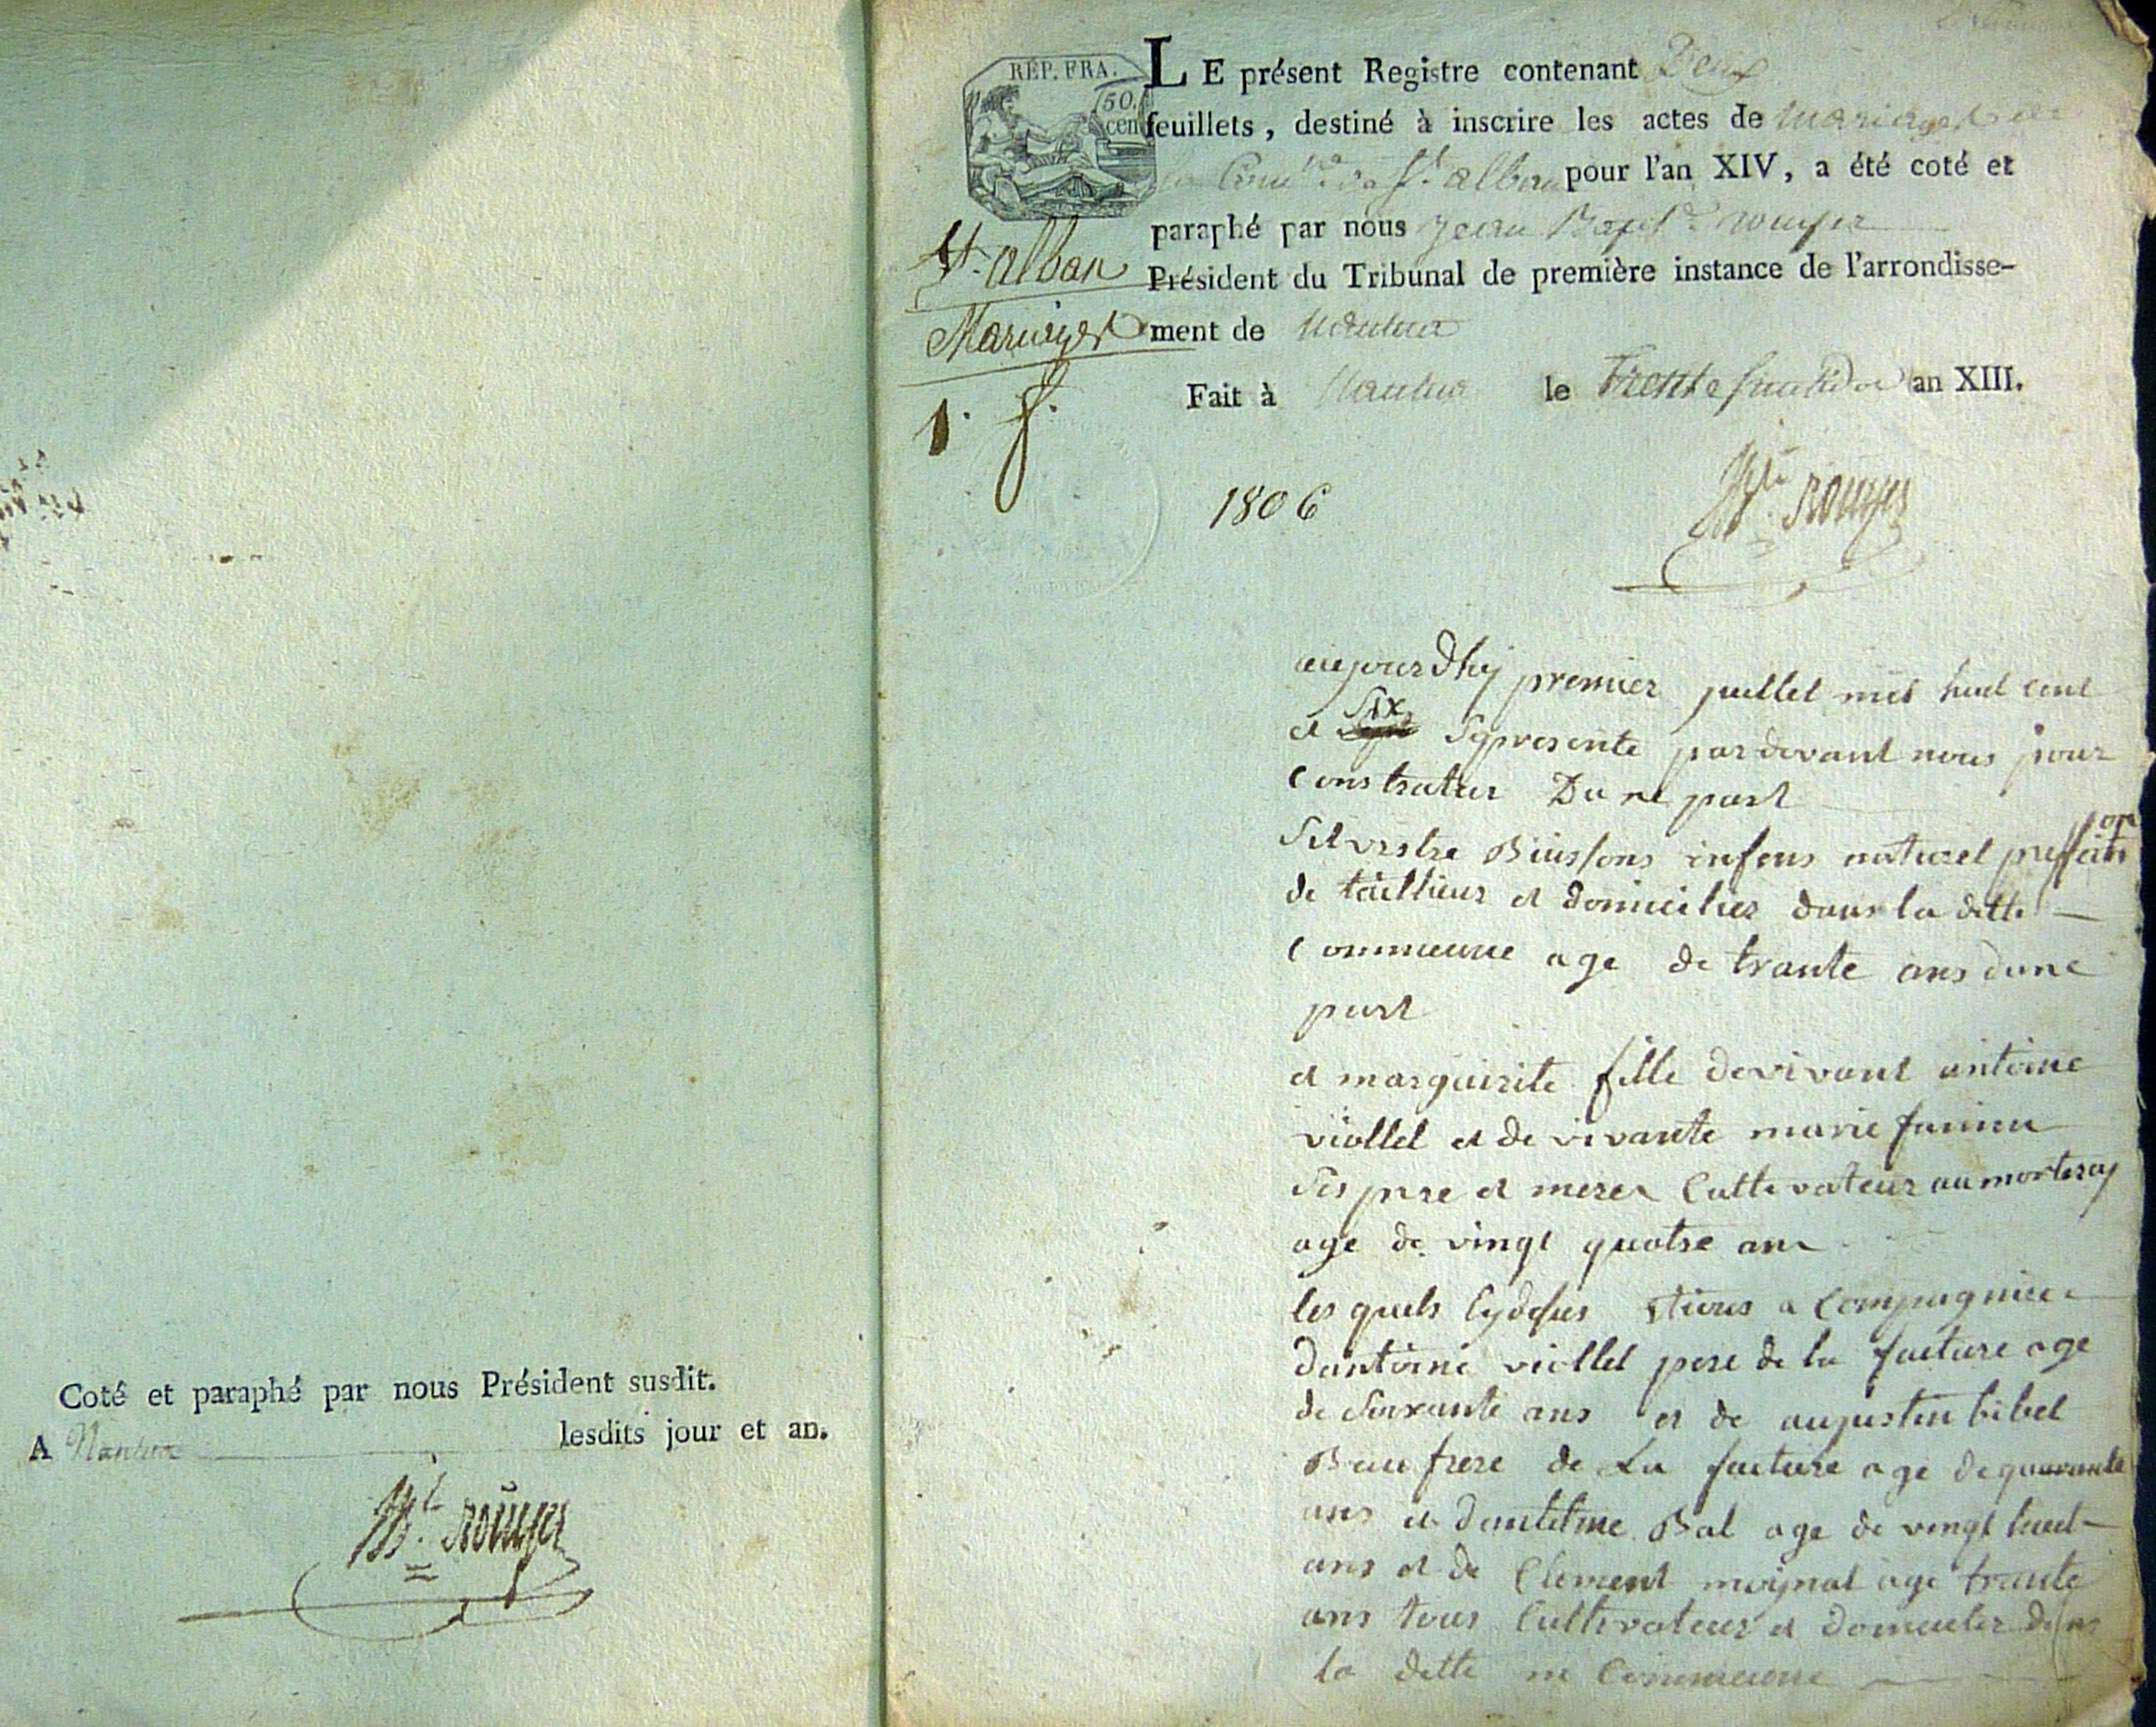 Coté et paraphé par nous Président susdit.
A Nantua lesdits jour et an.
Bte Rouyer
RÉP. FRA.
50.
cen
LE présent Registre contenant Deux
feuillets, destiné à inscrire les actes de mariages de
la Comne de St alban pour l'an XIV, a été coté et
paraphé par nous Jean Bapte Rouyer
Président du Tribunal de première instance de l'arrondisse-
ment de Nantua
Fait à Nantua le Trente fructidor an XIII.
St. alban
Mariages
1. f.
1806
Bte Rouyer
aujourdhuj premier juillet mil huit cent
et six se presente pardevant nous pour
constrater Dune part
Silvestre Buissons enfens naturel
de taillieur et domicilier dans la ditte
commeune age de trante ans dune
part
et margueirite fille de vivant antoine
viollet et de vivante marie
ses pere et mere cultivateur au mortaray
age de vingt quatre an
les quels cydesus a compagnier
dantoine viollet pere de la future age
de soixante ans et de augustin bibet
Beau frere de La future age de quarante
ans et dantelme Bal age de vingt huit
ans et de Clement age trante
ans tous cultivateur et domicilier dans
la ditte commeune